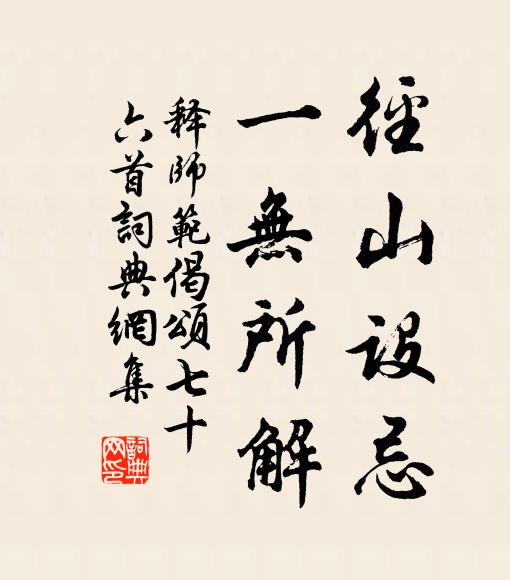 徑山設忌
一無所解
释師範偈頌七十
六首詞典網集
詞典
网印